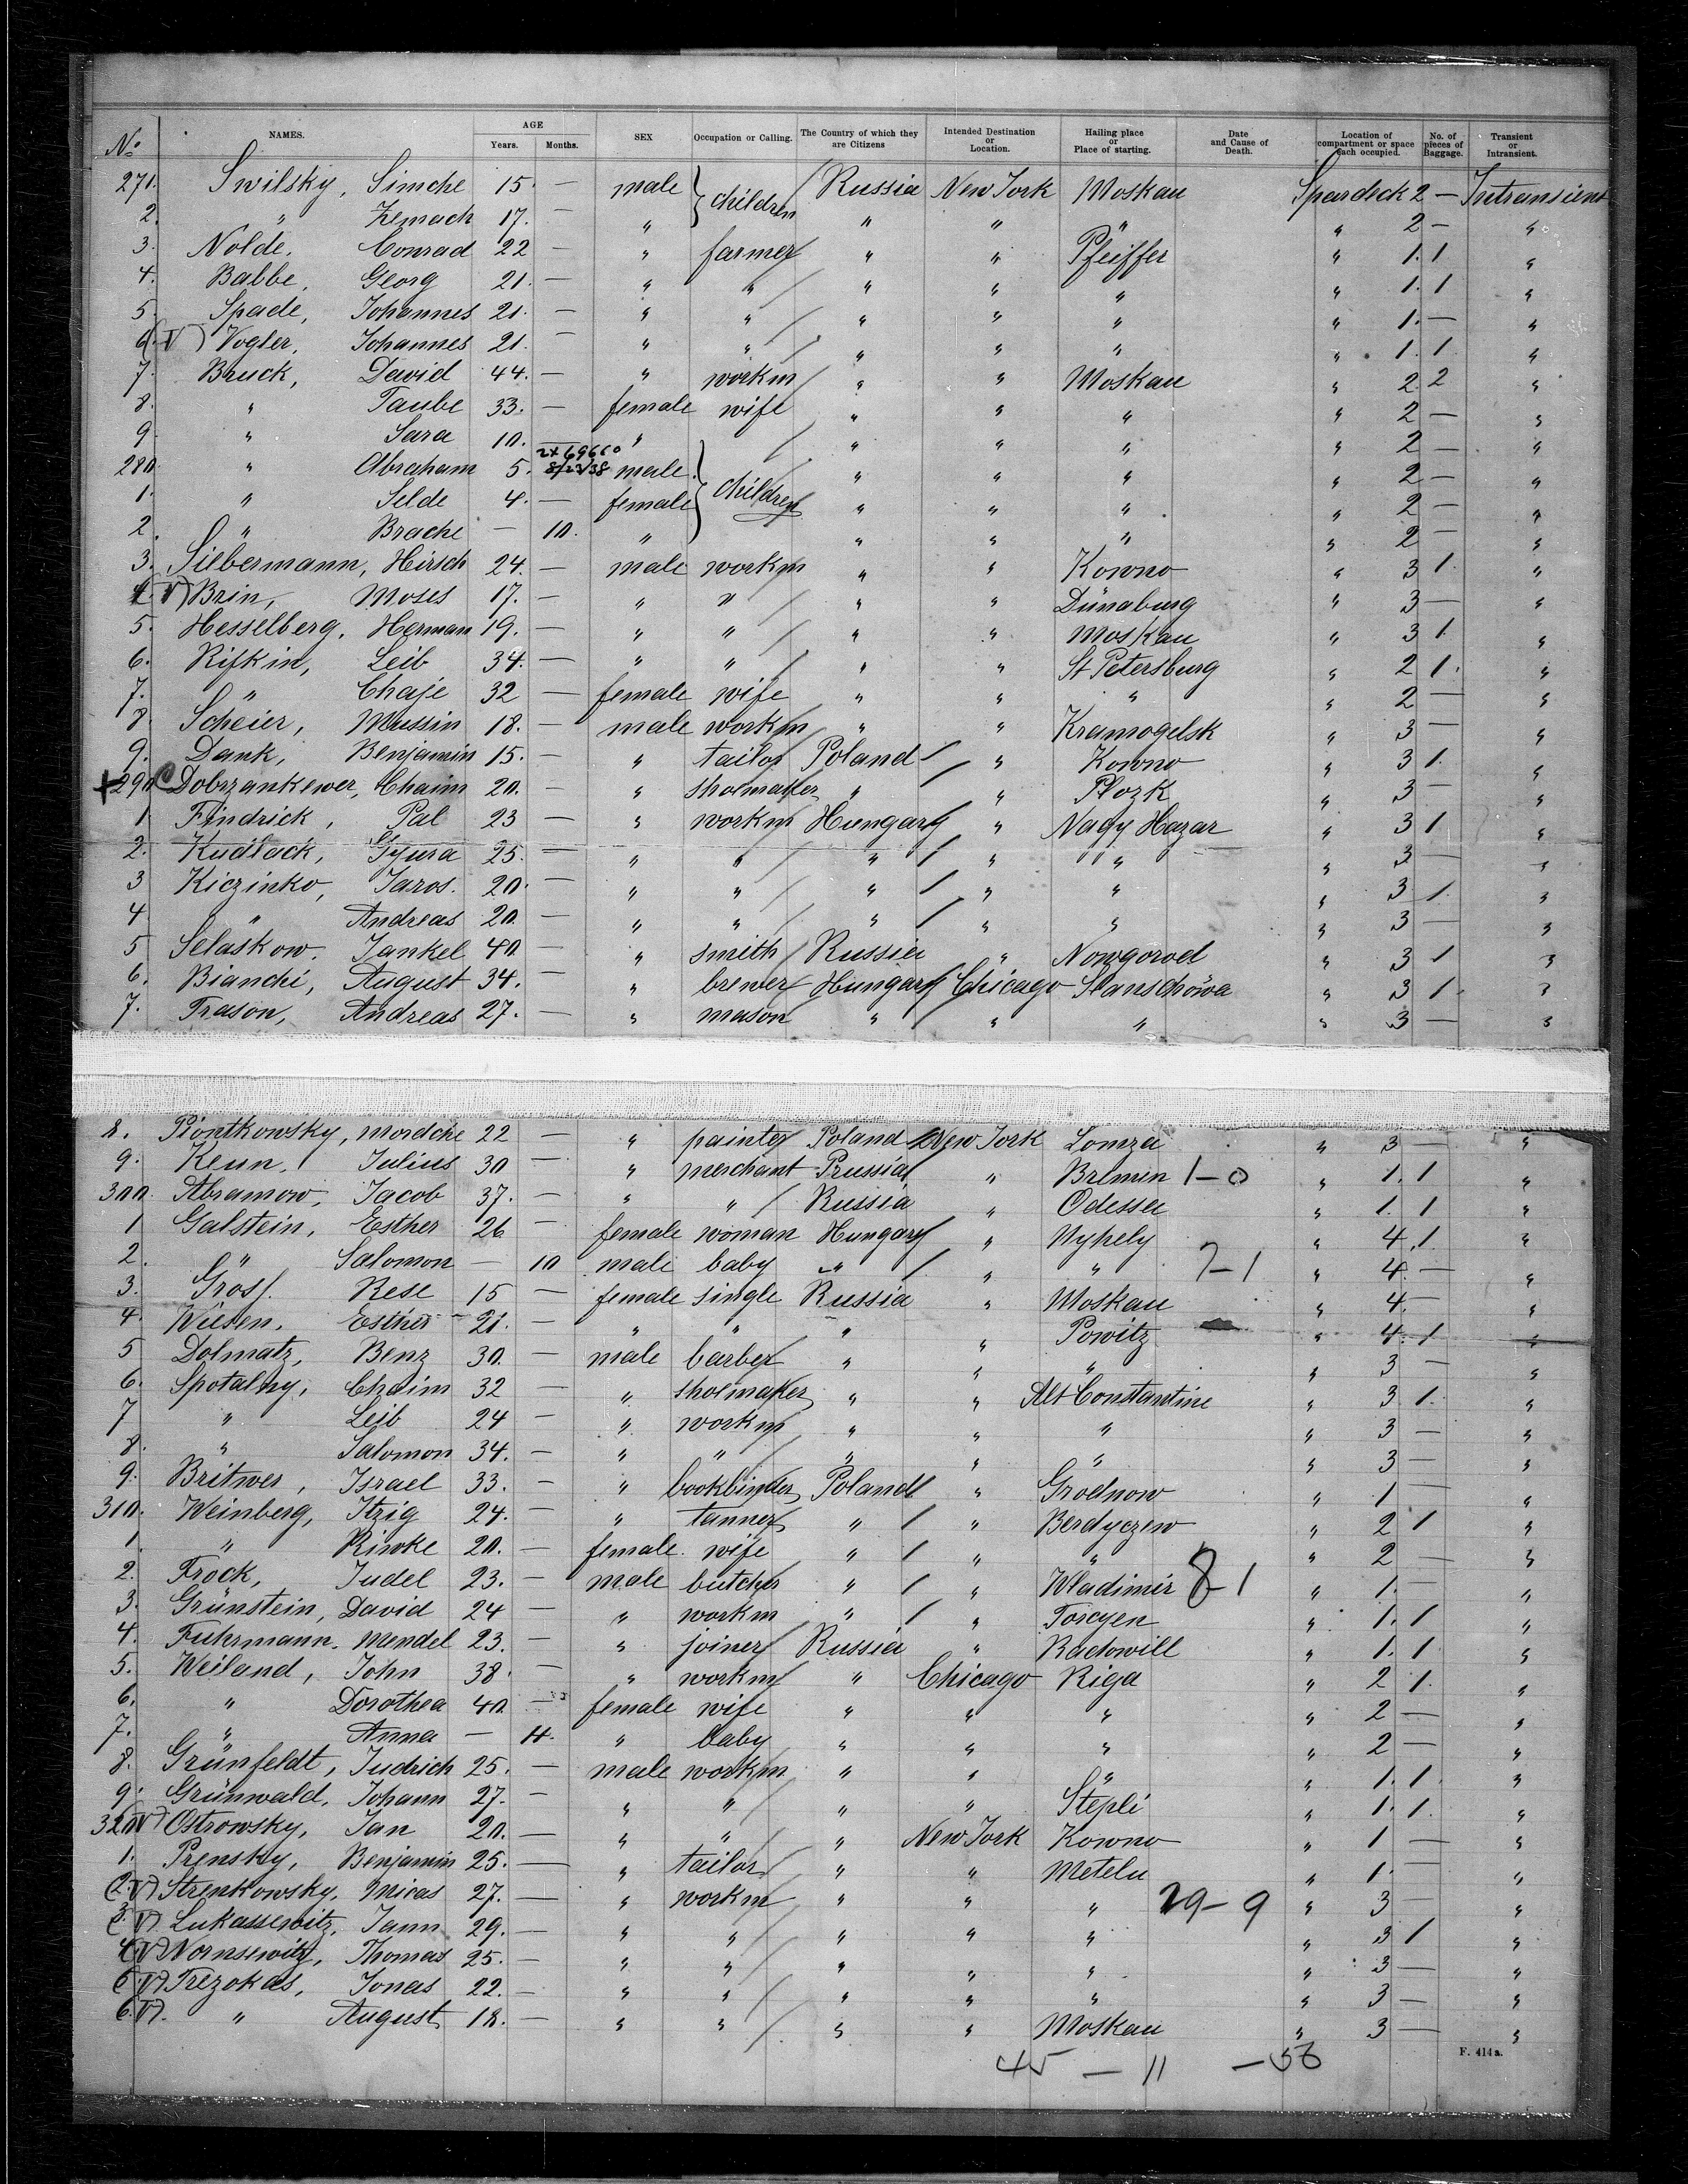 No. NAMES. AGE Years. Months. SEX Occupation or Calling. The Country of which they are Citizens Intended Destination or Location. Hailing place or Place of starting. Date and Cause of Death. Location of compartment or space each occupied. No. of pieces of Baggage. Transient or Intransient.
271. Swilsky, Simche 15. — male } children / Russia New York Moskau Spardeck 2 — Intransient
2. " Zemach 17. — " " " " " 2 — "
3. Nolde, Conrad 22 — " farmer / " " Pfeiffer " 1. 1 "
4. Babbe, Georg 21. — " " / " " " " 1. 1 "
5. Spade, Johannes 21. — " " / " " " " 1. — "
6. (V) Vogler, Johannes 21. — " " / " " " " 1. 1 "
7. Bruck, David 44. — " workm " " Moskau " 2. 2 "
8. " Taube 33. — female wife " " " " 2 — "
9. " Sara 10. — " } children / " " " " 2 — "
280. " Abraham 5. 2x69660 8/23/38 male " " " " 2 — "
1. " Selde 4. — female " " " " 2 — "
2. " Brache — 10. " " " " " 2 — "
3. Silbermann, Hirsch 24. — male workm " " Kowno " 3 1. "
4. (V) Brin, Moses 17. — " " / " " Dünaburg " 3 — "
5. Hesselberg, Herman 19. — " " / " " Moskau " 3 1. "
6. Rifkin, Leib 34. — " " / " " St Petersburg " 2 1. "
7. " Chaje 32 — female wife " " " " 2 — "
8. Scheier, Mussin 18. — male workm " " Kramogelsk " 3 — "
9. Dank, Benjamin 15. — " tailor Poland / " Kowno " 3 1. "
+ 290 Dobrzankewer, Chaim 20. — " shoemaker " " Plozk " 3 — "
1 Findrick, Pal 23 — " workm Hungary " Nagy Hazar " 3 1 "
2. Kudlack, Gyura 25. — " " / " / " " " 3 — "
3 Kiczinko, Jaros. 20. — " " / " / " " " 3 1. "
4 " Andreas 20. — " " / " / " " " 3 — "
5 Selaskow. Jankel 40 — " smith / Russia " Nowgorod " 3 1 "
6. Bianchi, August 34. — " brewer Hungary Chicago Stanschöwa " 3 1. "
7. Trason, Andreas 27. — " mason " / " " " 3 — "
8. Piontkowsky, Mordche 22 — " painter Poland New York Lomza " 3 — "
9. Keun, Julius 30 — " merchant Prussia " Bremin 1-0 " 1. 1 "
300. Abramow, Jacob 37. — " " / Russia " Odessa " 1. 1 "
1 Galstein, Esther 26 — female woman Hungary " Uyhely " 4. 1. "
2. " Salomon — 10 male baby " / " " 7-1 " 4. — "
3. Gross. Rese 15 — female single Russia " Moskau " 4. — "
4. Wiesen, Esther 21. — " " " " Powitz " 4. 1 "
5 Dolmatz, Benz 30. — male barber " " " " 3 — "
6. Spotalny, Chaim 32 — " shoemaker " " Alt Constantine " 3 1. "
7 " Leib 24 — " workm " " " " 3 — "
8. " Salomon 34. — " " / " " " " 3 — "
9. Britwer, Israel 33. — " bookbinder Poland " Grodnow " 1 — "
310. Weinberg, Itzig 24. — " tanner " / " Berdyczew " 2 1 "
1. " Riwke 20. — female. wife " / " " " 2 — "
2. Frock, Judel 23. — male butcher " / " Wladimir 8-1 " 1. — "
3. Grünstein, David 24 — " workm " / " Torcyen " 1. 1 "
4. Fuhrmann. Mendel 23. — " joiner Russia " Radowill " 1. 1 "
5. Weiland, John 38. — " workm " Chicago Riga " 2 1. "
6. " Dorothea 40. — female wife " " " " 2 — "
7. " Anna — 4. " baby " " " " 2 — "
8. Grünfeldt, Judrich 25. — male workm " " " " 1. 1 "
9. Grünwald, Johann 27. — " " / " " Stepli " 1. 1. "
320 (V) Ostrowsky, Jan 20. — " " / " New York Kowno " 1 — "
1. Prensky, Benjamin 25. — " tailor " " Metelu " 1. — "
2. (V) Strenkowsky, Micas 27. — " workm " " " 29-9 " 3 — "
3. (V). Lukassewitz, Jann 29. — " " / " " " " 3 1 "
4. (V) Nornsewitz, Thomas 25. — " " / " " " " 3 — "
5. (V) Trezokas, Jonas 22. — " " / " " " " 3 — "
6. (V). " August 18. — " " / " " Moskau " 3 — "
45 — 11 — 56
F. 414a.